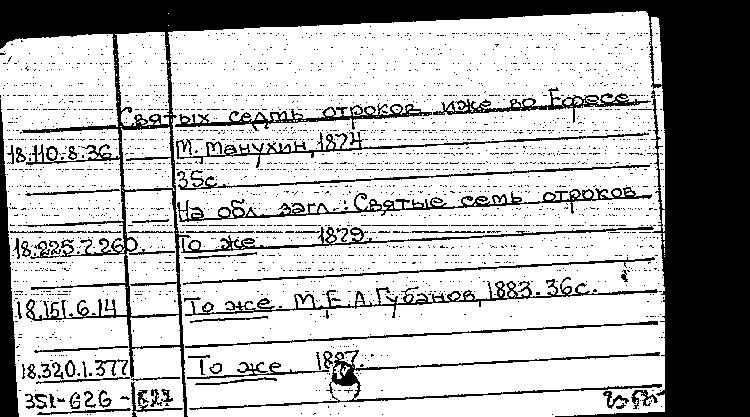 Святых седмь отроков иже во Ефесе.
18.110.8.36. М., Манухин, 1874
35с.
На обл. загл.: Святые семь отроков
18.225.7.260. То же. 1879.
18.151.6.14 То же. М., Е.А. Губанов, 1883. 36с.
18.320.1.377 То же. 1887.
351-626-627